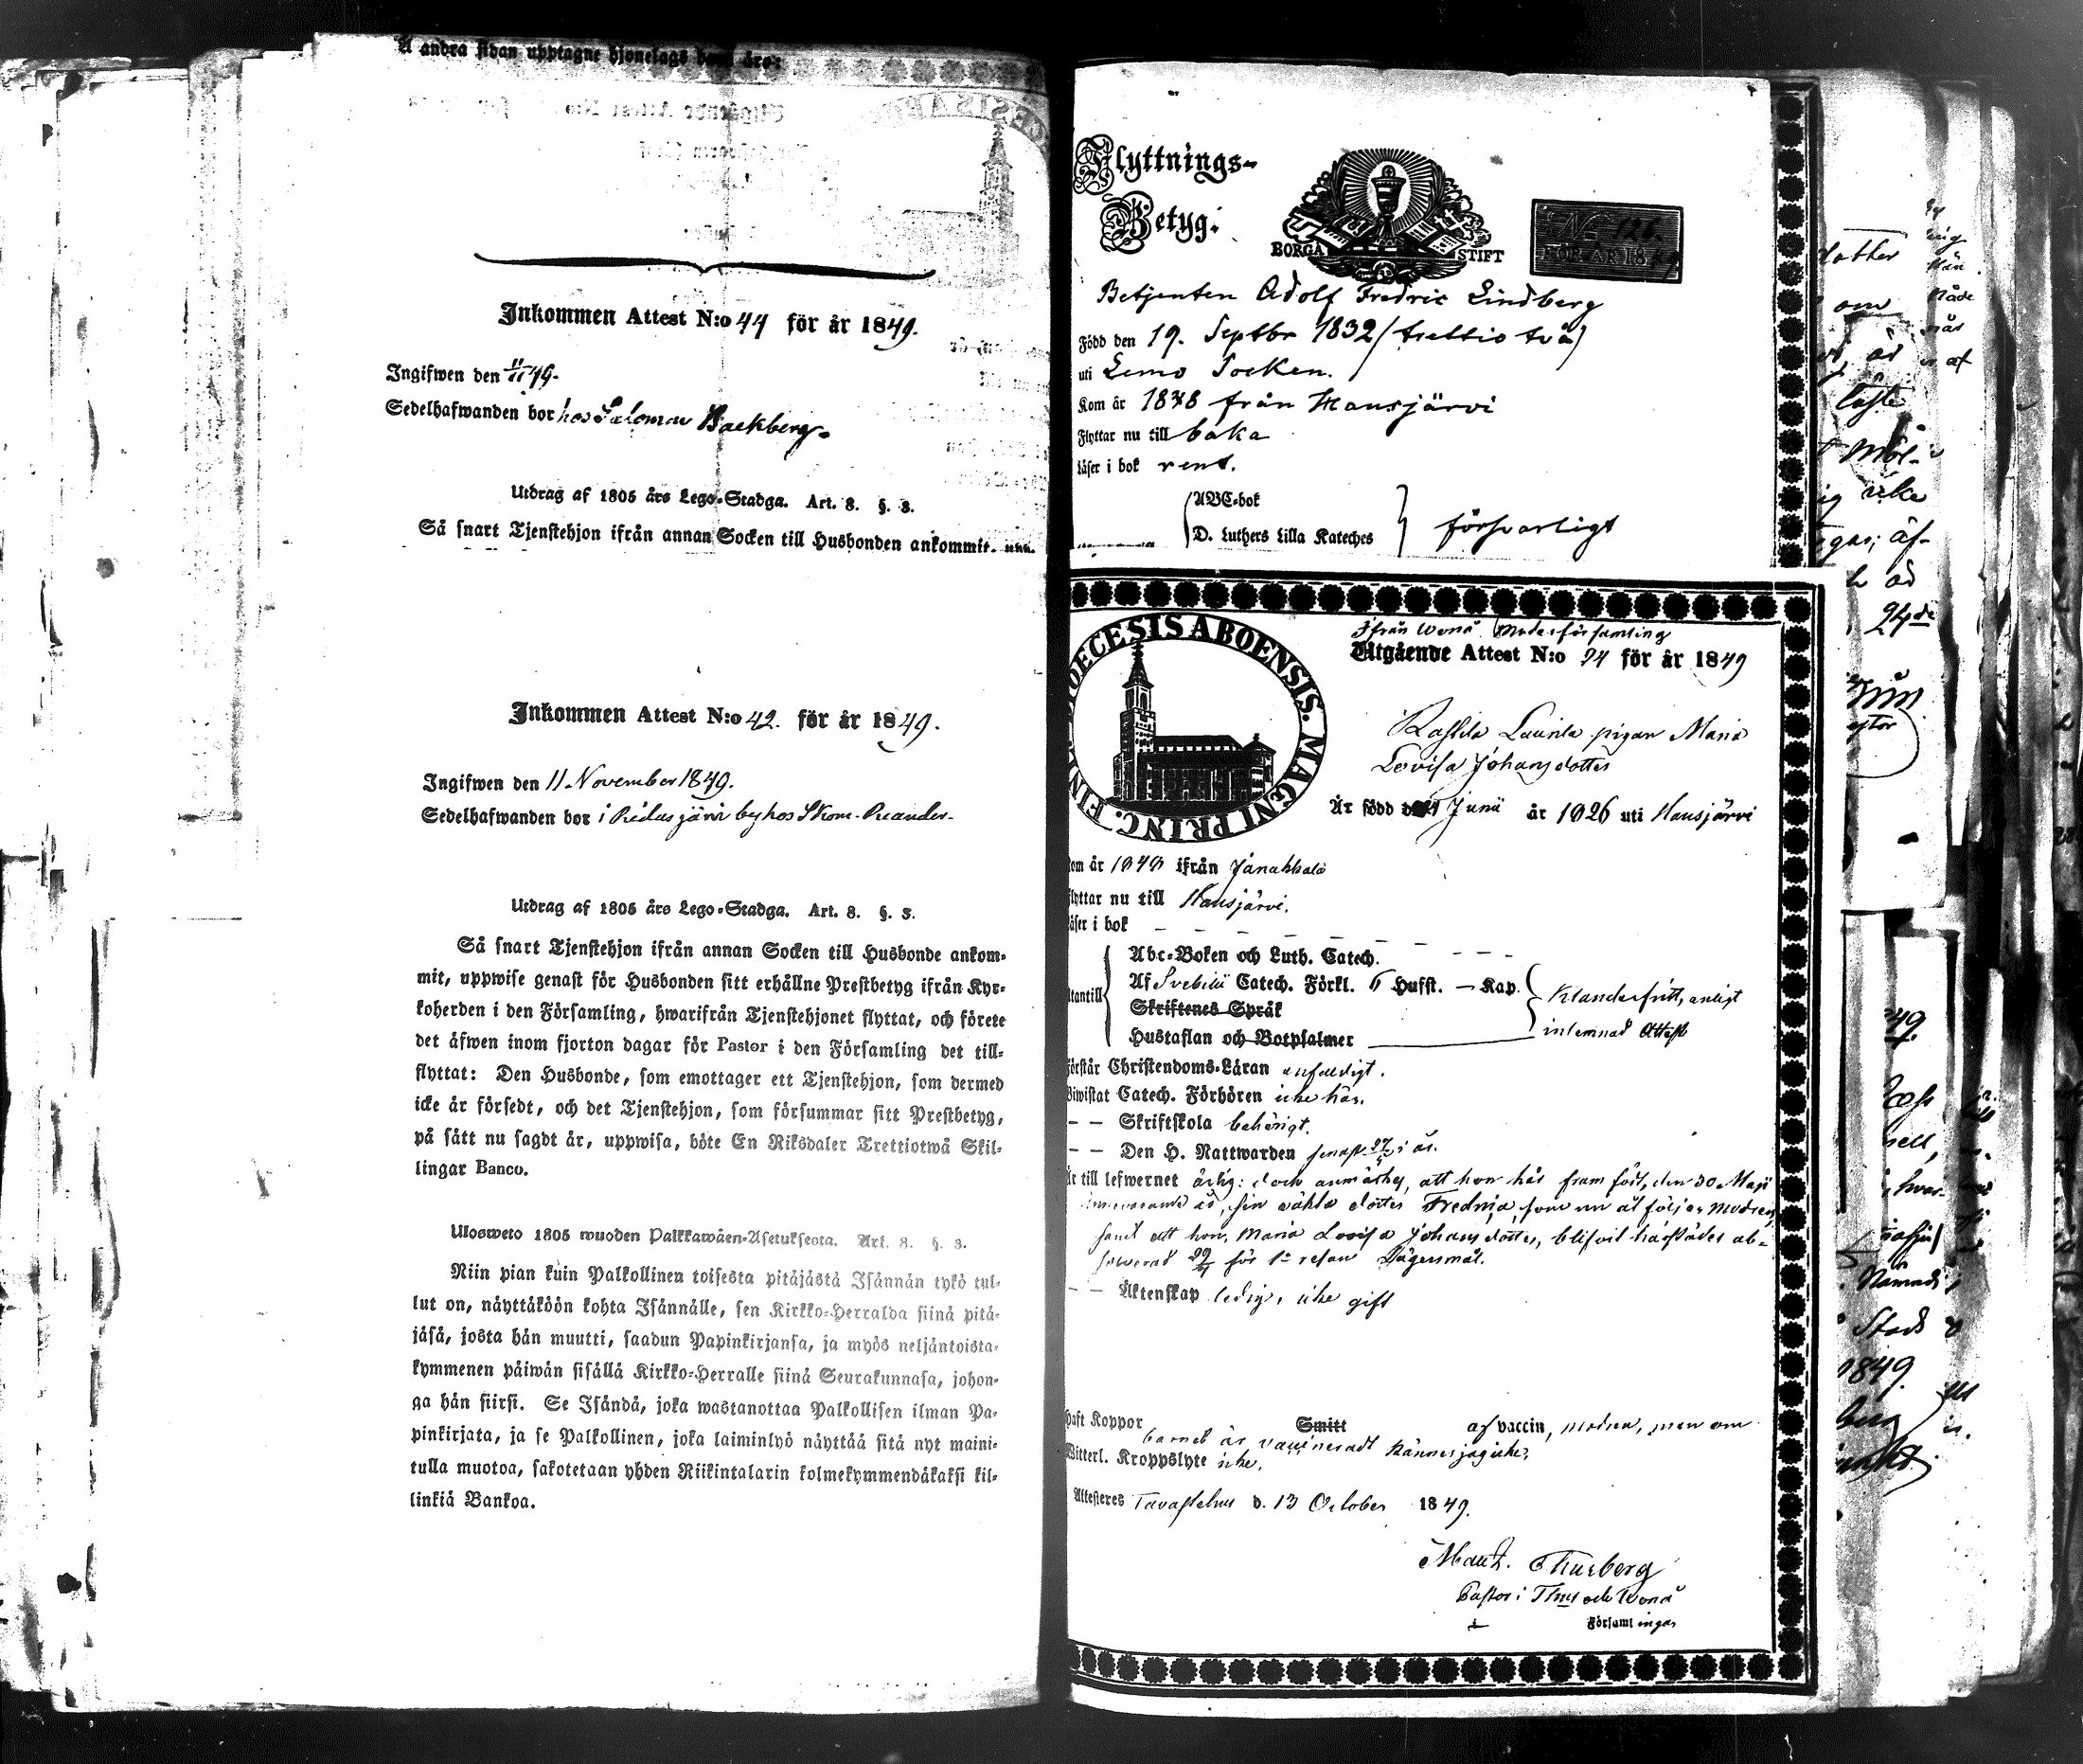 Å andra sidan upptagne hjonelags barn äro:
Inkommen Attest N:o 44 för år 1849.
Ingifwen den 11/11 49.
Sedelhafwanden bor hos Salomon Backberg.
Utdrag af 1805 års Lego-Stadga. Art. 8. §. 3.
Så snart Tjenstehjon ifrån annan Socken till Husbonden ankommit.
Inkommen Attest N:o 42. för år 1849.
Ingifwen den 11 November 1849.
Sedelhafwanden bor i Ridasjärvi by hos Skom. Reander.
Utdrag af 1805 års Lego-Stadga. Art. 8. §. 3.
Så snart Tjenstehjon ifrån annan Socken till Husbonde ankom-
mit, uppwise genast för Husbonden sitt erhållne Prestbetyg ifrån Kyr-
koherden i den Församling, hwarifrån Tjenstehjonet flyttat, och förete
det äfwen inom fjorton dagar för Pastor i den Församling det till-
flyttat: Den Husbonde, som emottager ett Tjenstehjon, som dermed
icke är försedt, och det Tjenstehjon, som försummar sitt Prestbetyg,
på sätt nu sagdt är, uppwisa, böte En Riksdaler Trettiotwå Skil-
lingar Banco.
Ulosweto 1805 wuoden Palkkawäen-Asetuksesta. Art. 8. §. 3.
Niin pian kuin Palkollinen toisesta pitäjästä Isännän tykö tul-
lut on, näyttäköön kohta Isännälle, sen Kirkko-Herralda siinä pitä-
jäsä, josta hän muutti, saadun Papinkirjansa, ja myös neljäntoista-
kymmenen päiwän sisällä Kirkko-Herralle siinä Seurakunnasa, johon-
ga hän siirsi. Se Isändä, joka wastanottaa Palkollisen ilman Pa-
pinkirjata, ja se Palkollinen, joka laiminlyö näyttää sitä nyt maini-
tulla muotoa, sakotetaan yhden Riikintalarin kolmekymmendäkaksi kil-
linkiä Bankoa.
Flyttnings-
Betyg.
BORGÅ STIFT
No 126.
FÖR ÅR 18
Betjenten Adolf Fredric Lindberg
Född den 19. Septbr 1832 (trettio två)
uti Lemo Socken.
Kom år 1848 från Hausjärvi
Flyttar nu till baka
Läser i bok rent.
ABC-bok
D. Luthers Lilla Kateches
försvarligt
DIOECESIS ABOENSIS. MAGNI PRINC. FINL.
Ifrån Wonå Moderförsamling
Utgående Attest N:o 94 för år 1849
Rastila Laurila pigan Maria
Lovisa Johansdotter
Är född den Junii år 1826 uti Hausjärvi
Kom år 1848 ifrån Janakkala
Flyttar nu till Hausjärvi.
Läser i bok
Abc-Boken och Luth. Catech.
Af Svebilii Catech. Förkl. 6 Hufst. — Kap.
Utantill
Skriftenes Språk
Hustaflan och Botpsalmer
Klanderfritt, enligt
inlemnad Attest
Förstår Christendoms-Läran enfaldigt.
Biwistat Catech. Förhören icke här.
— — Skriftskola behörigt.
— — Den H. Nattwarden senast 27/5 i år.
Är till lefwernet ärlig: dock anmärkes, att hon här framfödt, den 30 Maji
innevarande år, sin oäkta dotter Fredrika, som nu åtföljer modren,
samt att hon, Maria Lovisa Johansdotter, blifvit härstädes ab-
solverad 29/7 för 1a resan Lägersmål.
— — Äktenskap ledig, icke gift
Haft Koppor Smitt af vaccin, modren, men om
barnet är vaccineradt känner jag icke.
Witterl. Kroppslyte icke.
Attesteres Tavastehus d. 13 October 1849.
Maur. Thurberg
Pastor i Thus och Wonå
Församlingar
dotter
om
24de
49.
Stads
1849.